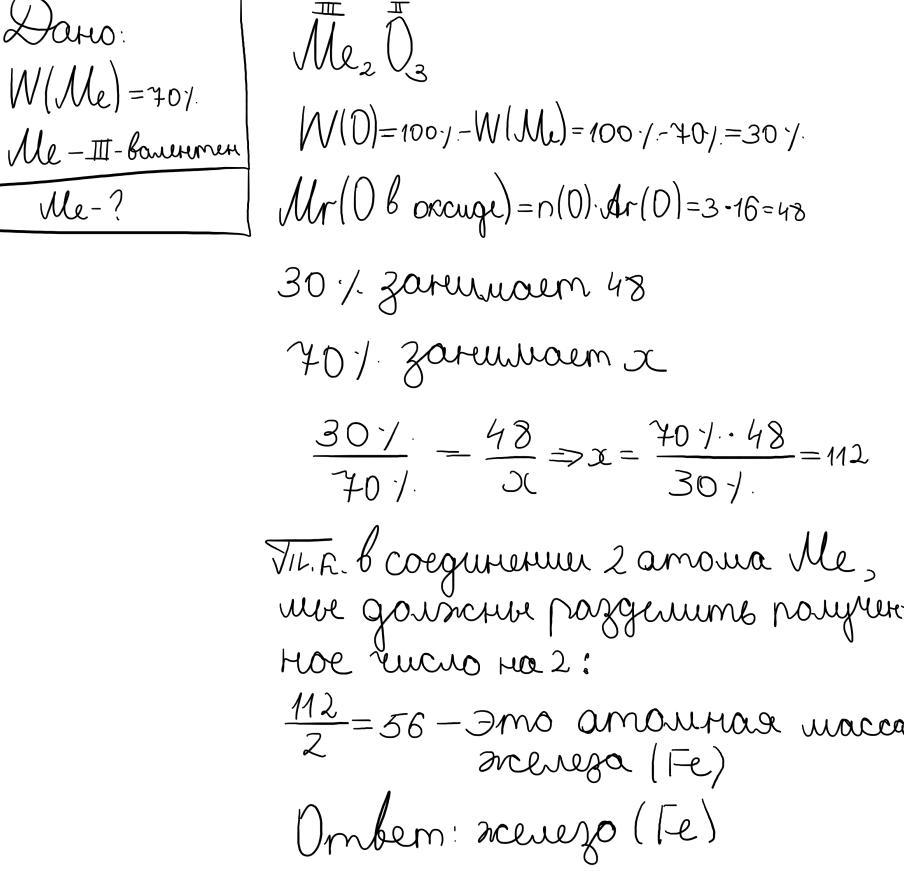 Дано:
W(Me)=70%
Me-III-валентен
Me-?
III II
Me₂O₃
W(O)=100%-W(Me)=100%-70%=30%
Mr(O в оксиде)=n(O)·Ar(O)=3·16=48
30% занимает 48
70% занимает x
30%/70% = 48/x ⇒ x = 70%·48/30% = 112
Т.к. в соединении 2 атома Me,
мы должны разделить получен-
ное число на 2:
112/2 = 56 – это атомная масса
железа (Fe)
Ответ: железо (Fe)